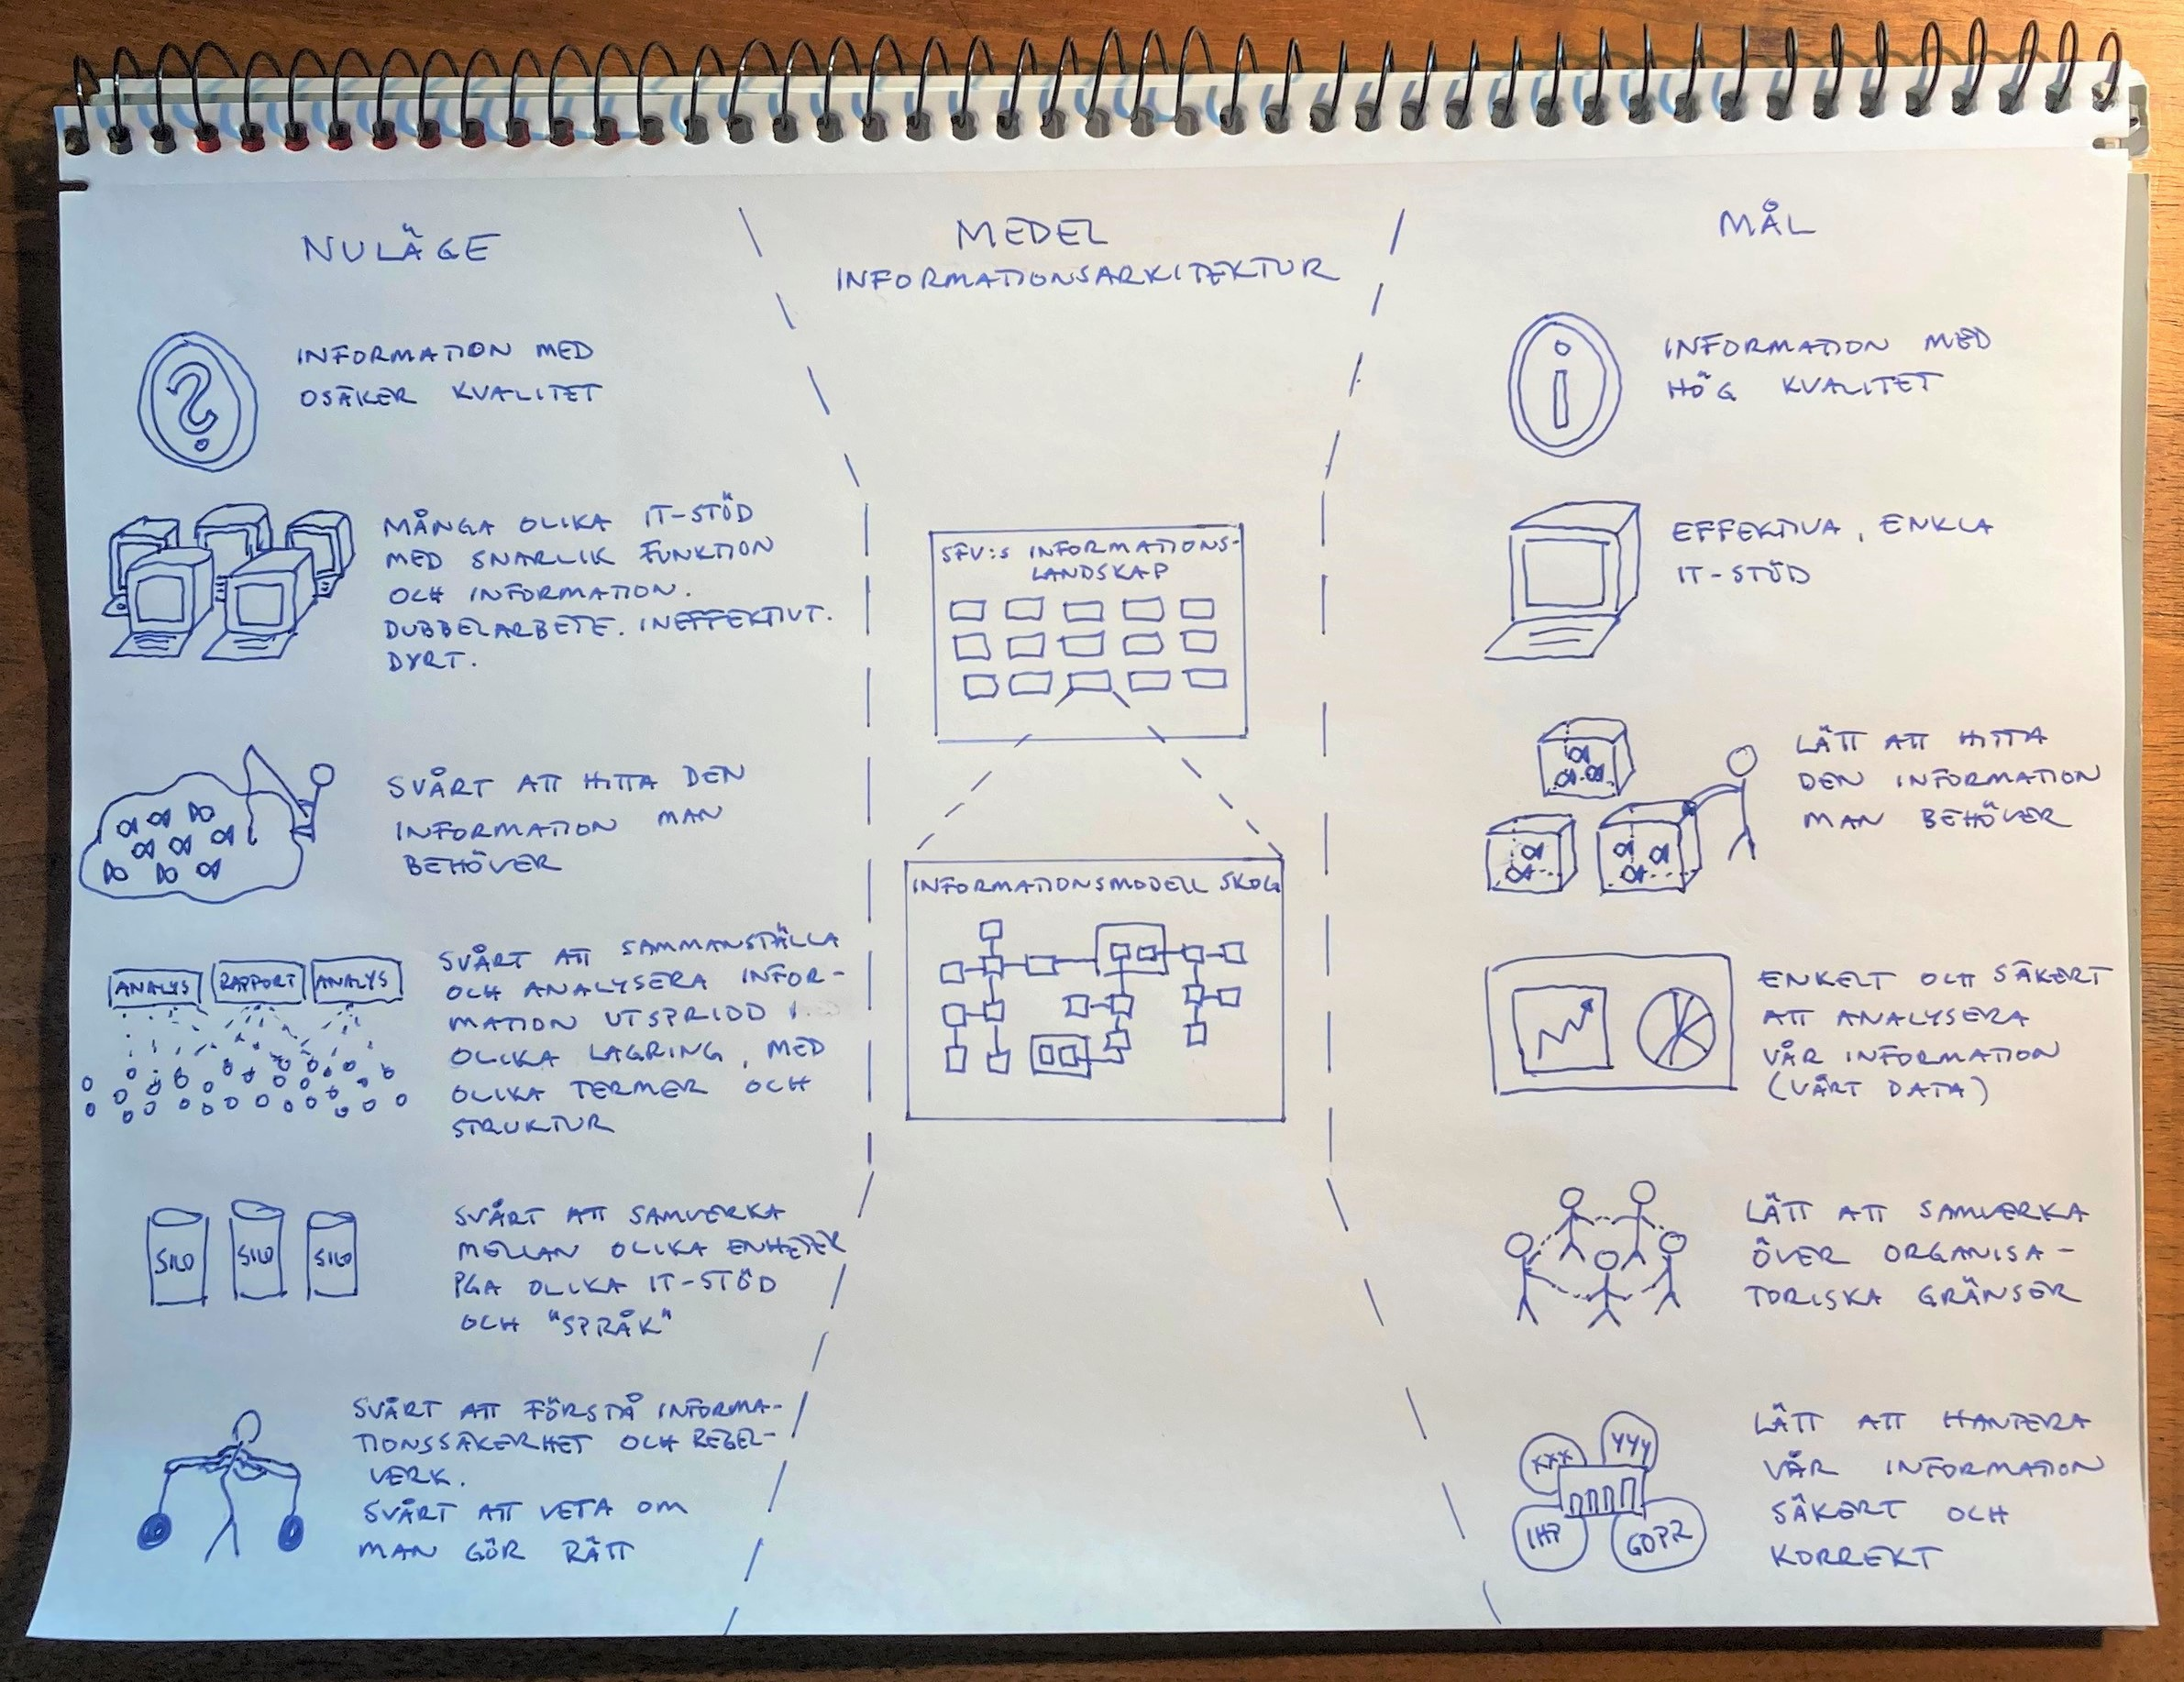 NULÄGE
INFORMATION MED
OSÄKER KVALITET
MÅNGA OLIKA IT-STÖD
MED SNARLIK FUNKTION
OCH INFORMATION.
DUBBELARBETE. INEFFEKTIVT.
DYRT.
SVÅRT ATT HITTA DEN
INFORMATION MAN
BEHÖVER
ANALYS RAPPORT ANALYS
SVÅRT ATT SAMMANSTÄLLA
OCH ANALYSERA INFOR-
MATION UTSPRIDD I
OLIKA LAGRING, MED
OLIKA TERMER OCH
STRUKTUR
SILO SILO SILO
SVÅRT ATT SAMVERKA
MELLAN OLIKA ENHETER
PGA OLIKA IT-STÖD
OCH "SPRÅK"
SVÅRT ATT FÖRSTÅ INFORMA-
TIONSSÄKERHET OCH REGEL-
VERK.
SVÅRT ATT VETA OM
MAN GÖR RÄTT
MEDEL
INFORMATIONSARKITEKTUR
SFV:S INFORMATIONS-
LANDSKAP
INFORMATIONSMODELL SKOG
MÅL
i
INFORMATION MED
HÖG KVALITET
EFFEKTIVA, ENKLA
IT-STÖD
LÄTT ATT HITTA
DEN INFORMATION
MAN BEHÖVER
ENKELT OCH SÄKERT
ATT ANALYSERA
VÅR INFORMATION
(VÅRT DATA)
LÄTT ATT SAMVERKA
ÖVER ORGANISA-
TORISKA GRÄNSER
XXX YYY
IHP GDPR
LÄTT ATT HANTERA
VÅR INFORMATION
SÄKERT OCH
KORREKT